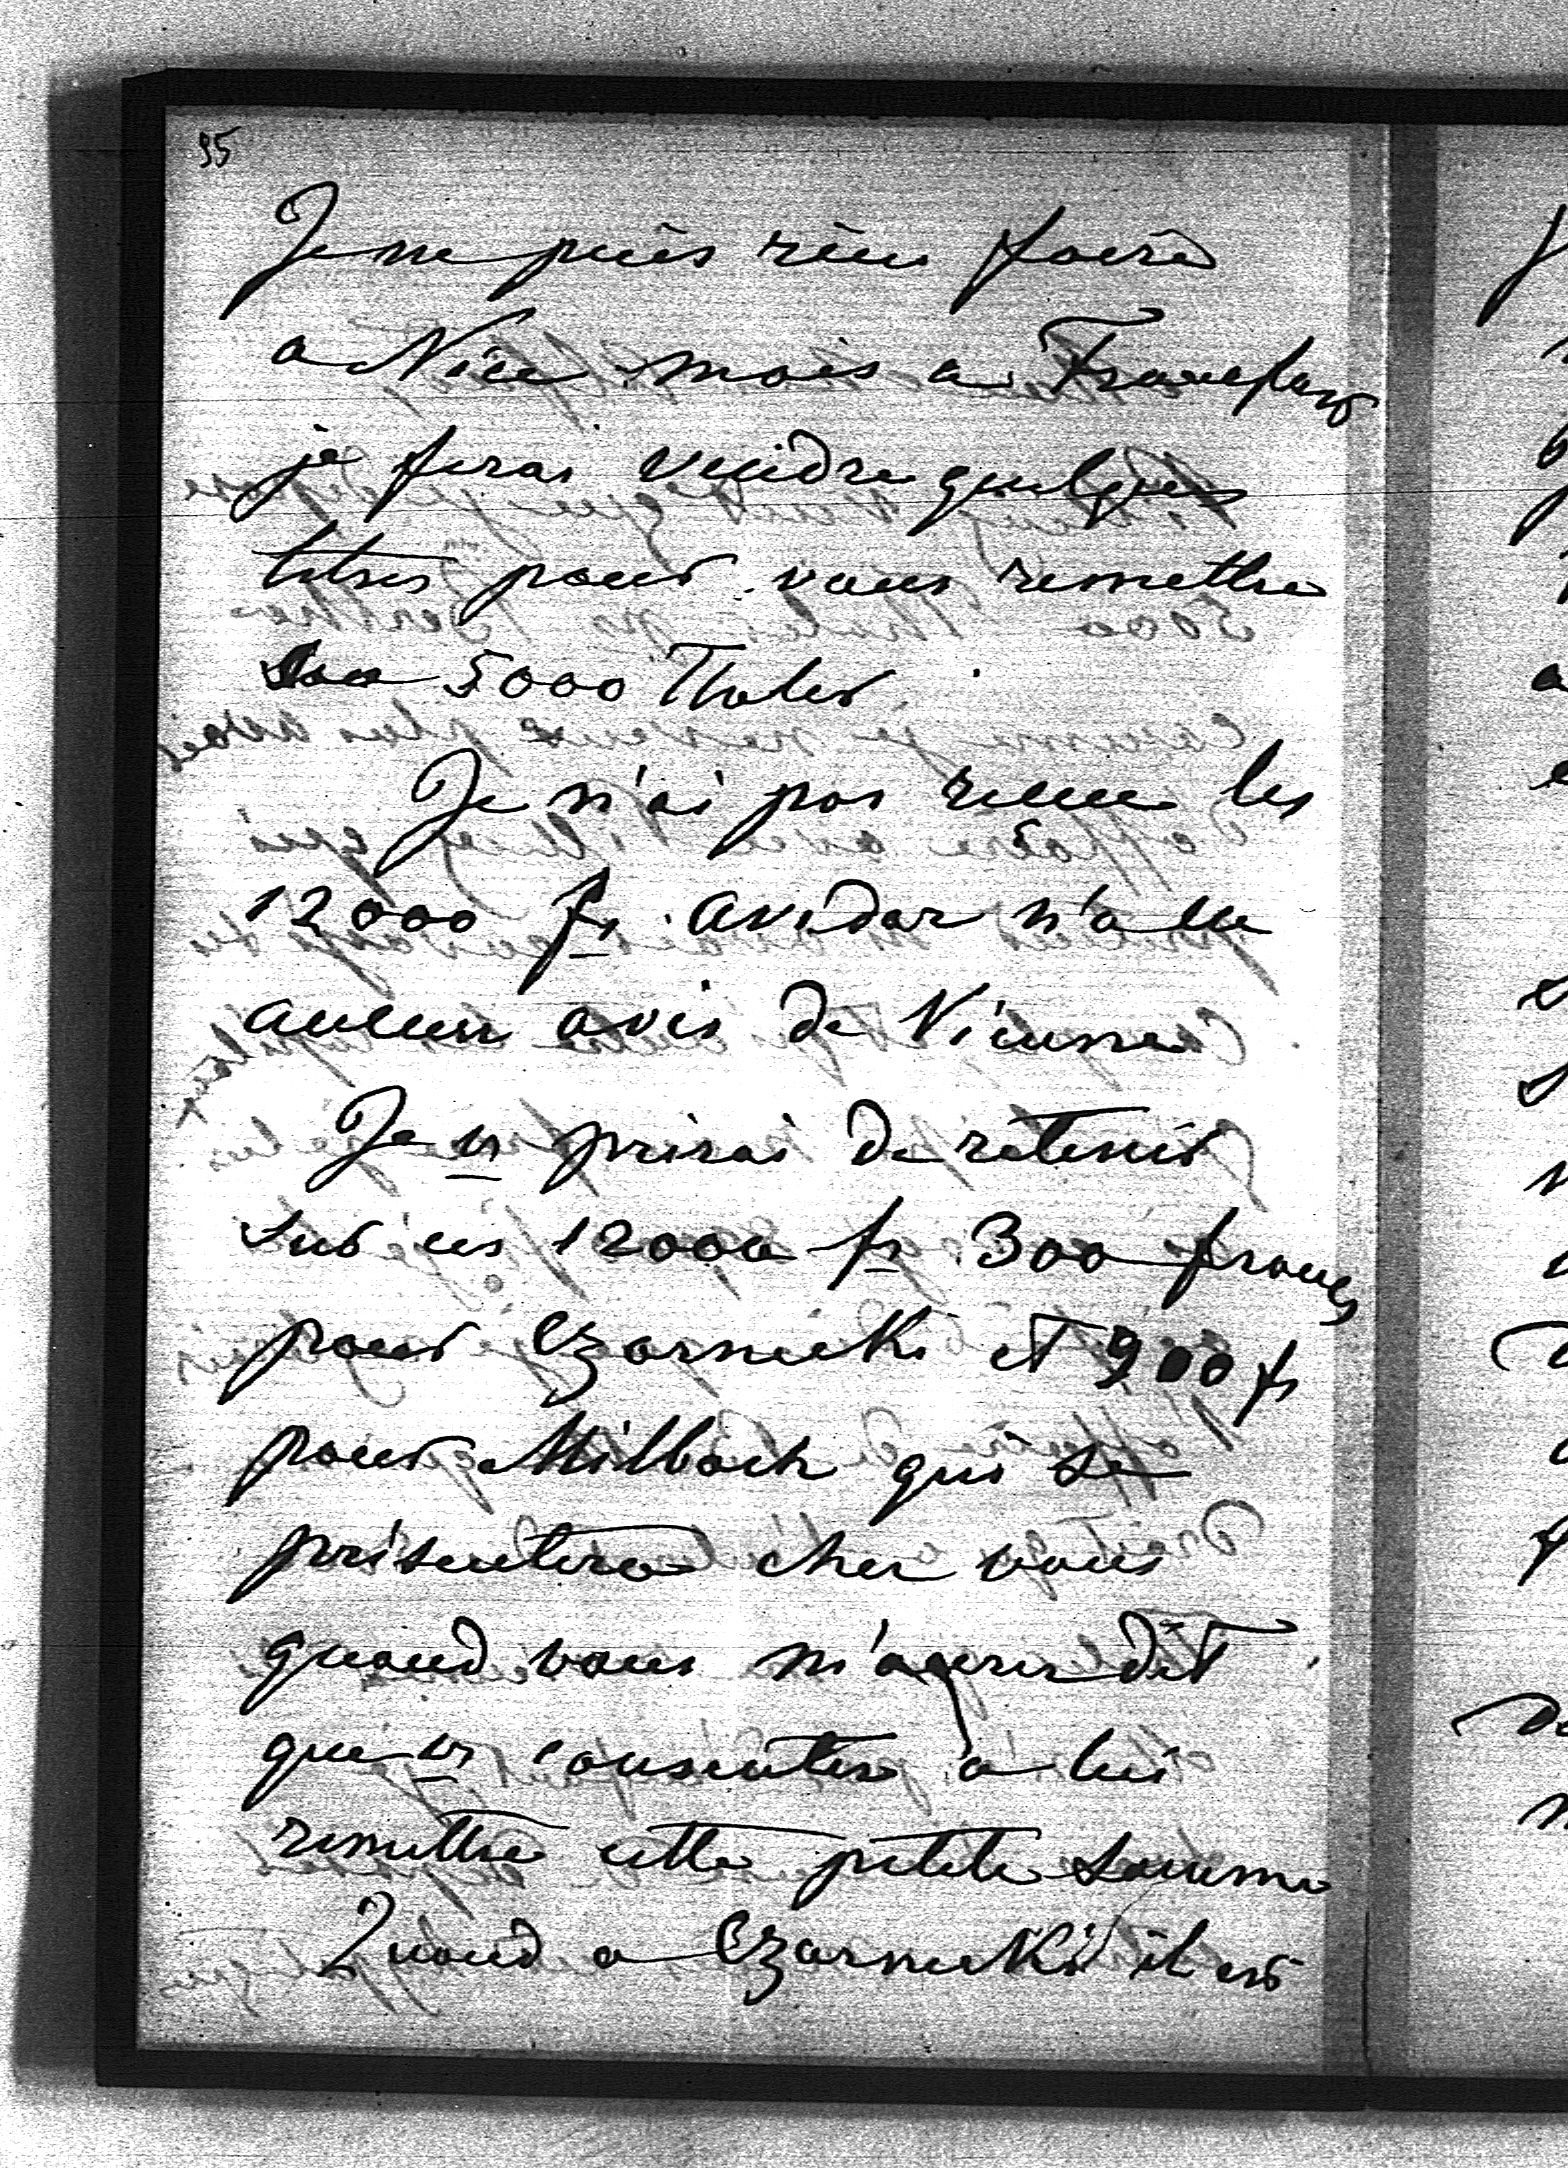 95
Je ne puis rien faire
a Nice mais a Francfort
je ferai vendre quelques
titres pour vous remettre
5000 Thaler
Je n'ai pas recue les
12000 fr. Avidor n'a eu
aucun avis de Vienne
Je vs prirai de retenir
sur ces 12000 fr 300 francs
pour Czarnecki et 900 fr
pour Milbach qui se
présentera chez vous
quand vous m'aurez dit
que vs consentez à lui
remettre cette petite somme
Quand a Czarnecki il est